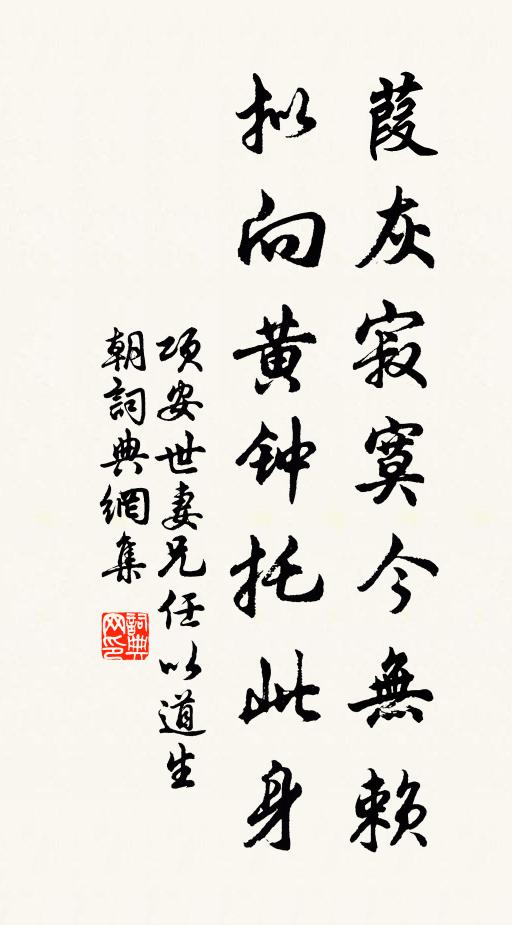 葭灰寂寞今無赖
拟向黄钟托此身
项安世妻兄任以道生
朝詞典網集
詞典网印